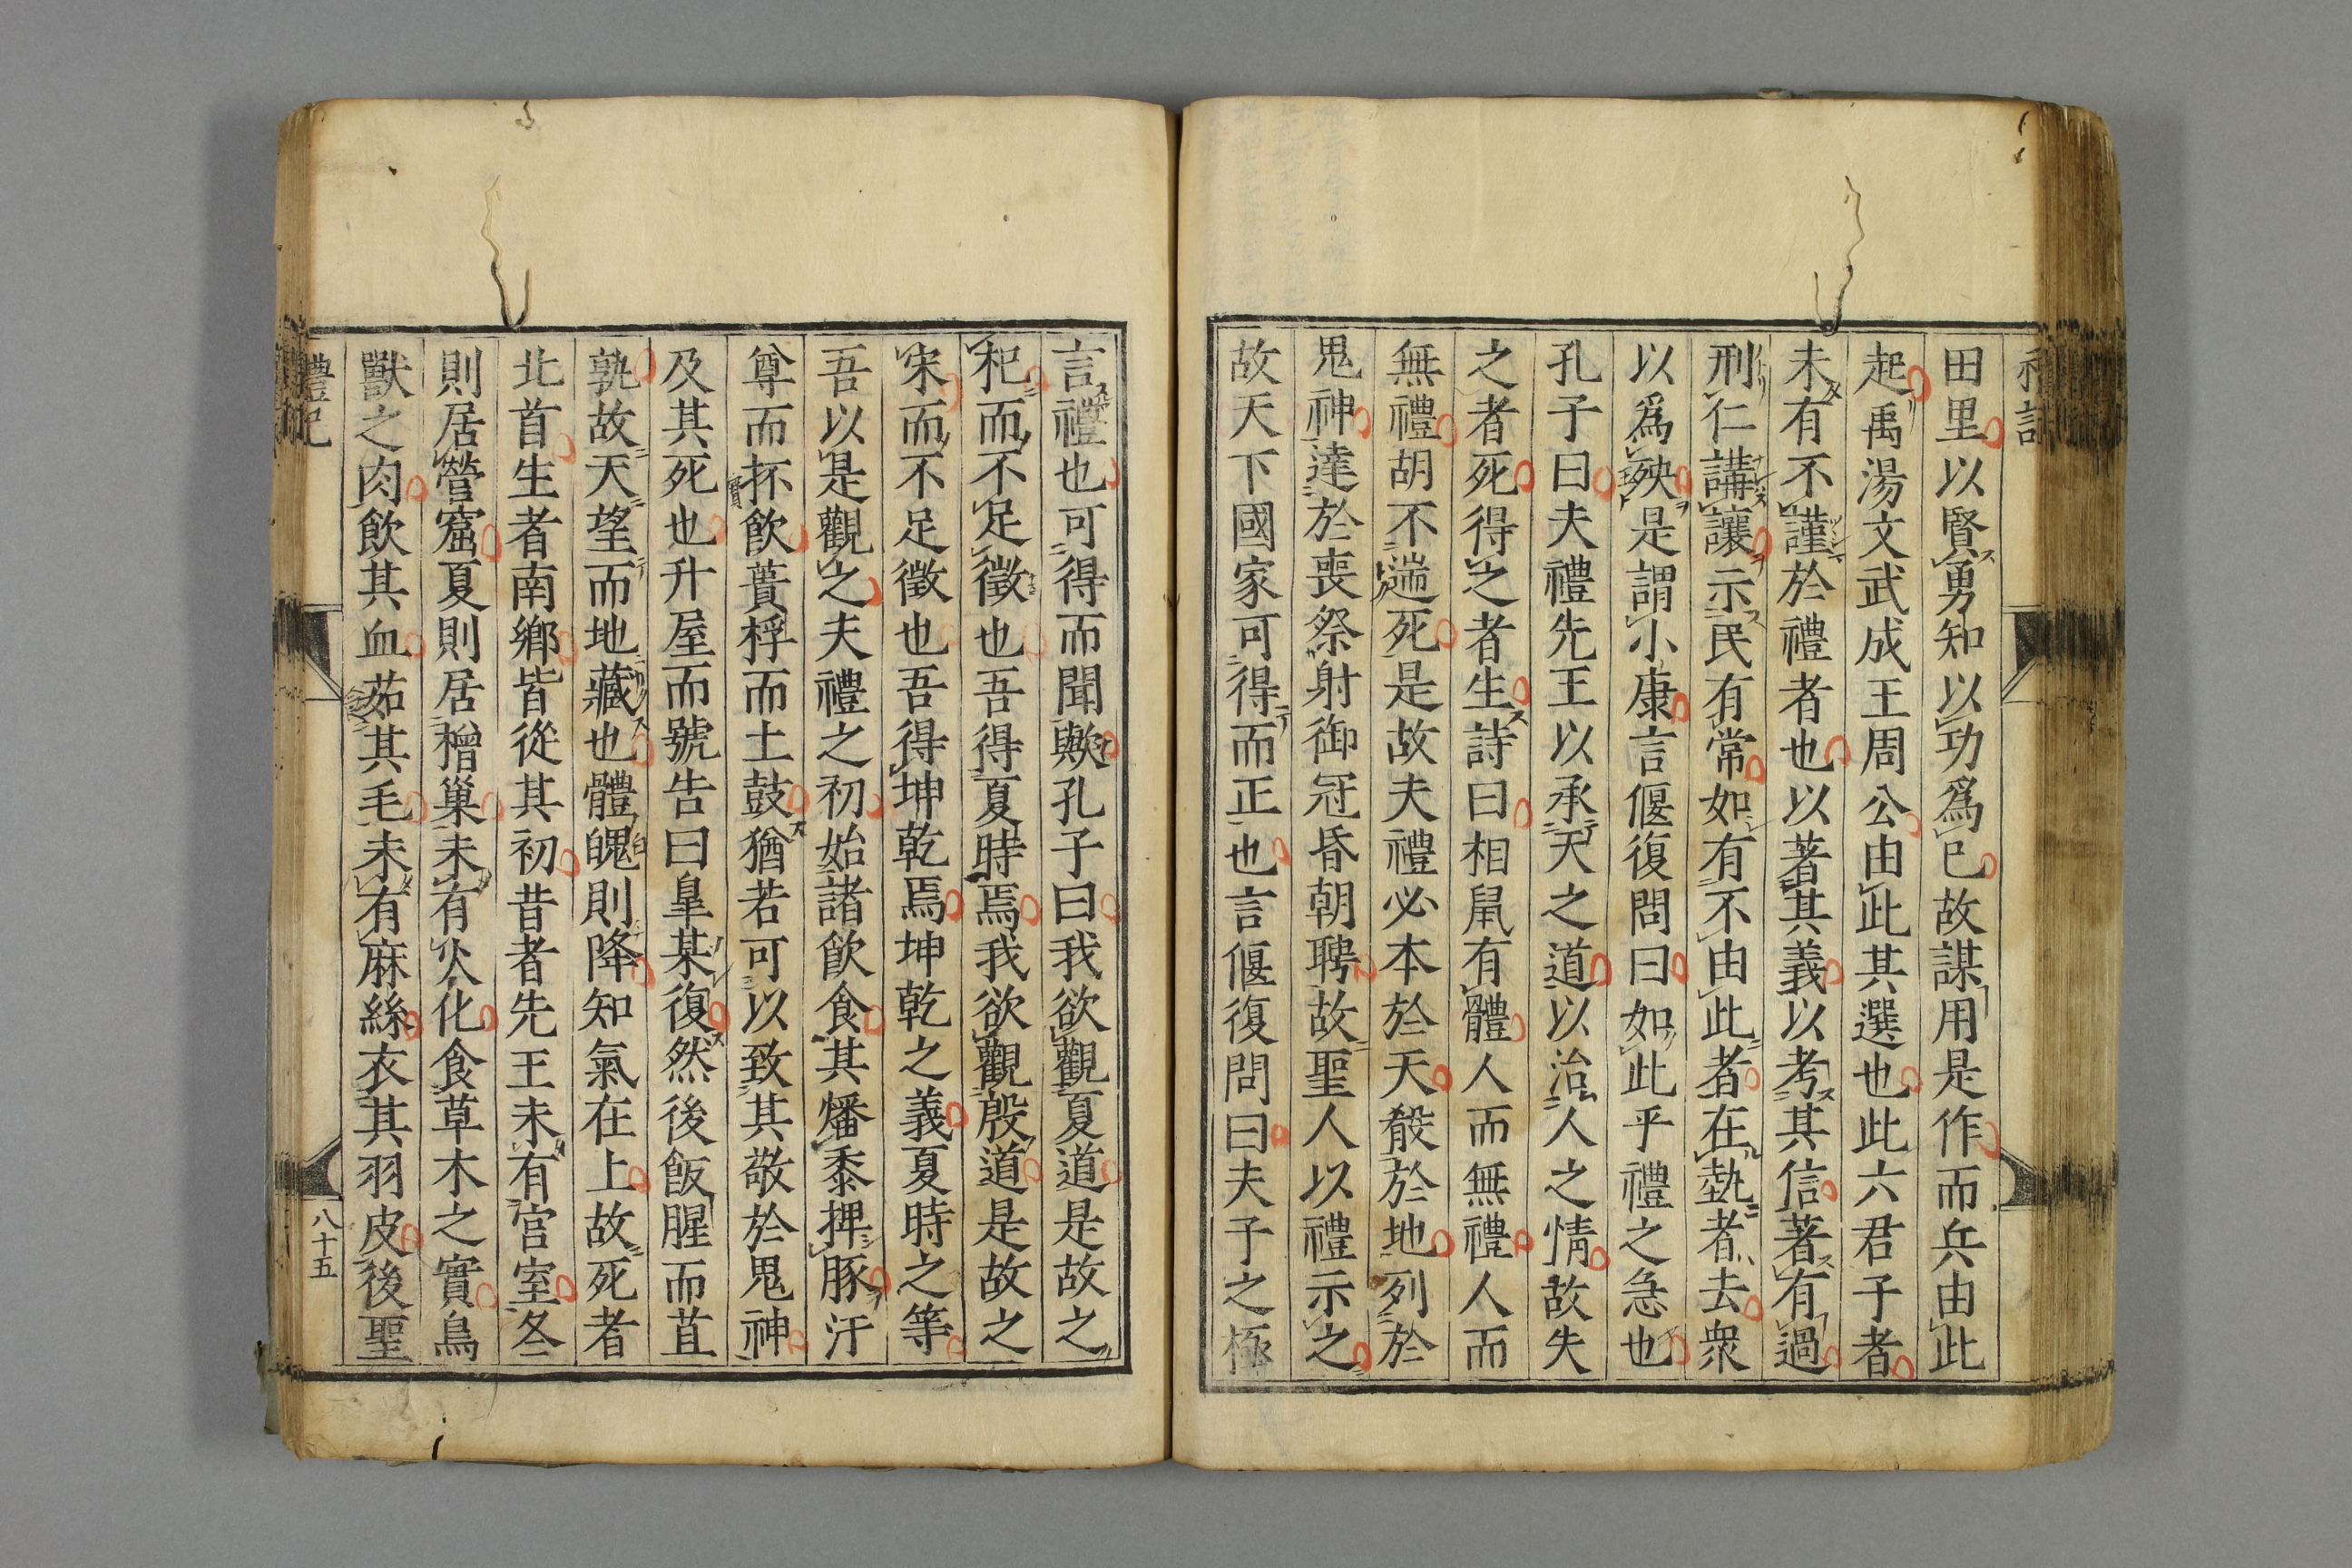 田里以賢勇知以功爲已故謀用是作而兵由此
起禹湯文武成王周公由此其選也此六君子者
未有不謹於禮者也以著其義以考其信著有過
刑仁講讓示民有常如有不由此者在埶者去衆
以爲殃是謂小康言偃復問曰如此乎禮之急也
孔子曰夫禮先王以承天之道以治人之情故失
之者死得之者生詩曰相鼠有體人而無禮人而
無禮胡不遄死是故夫禮必本於天殽於地列於
鬼神達於喪祭射御冠昏朝聘故聖人以禮示之
故天下國家可得而正也言偃復問曰夫子之極
言禮也可得而聞歟孔子曰我欲觀夏道是故之
杞而不足徵也吾得夏時焉我欲觀殷道是故之
宋而不足徵也吾得坤乾焉坤乾之義夏時之等
吾以是觀之夫禮之初始諸飲食其燔黍捭豚汙
尊而抔飲蕢桴而土鼓猶若可以致其敬於鬼神
及其死也升屋而號告曰皐某復然後飯腥而苴
孰故天望而地藏也體魄則降知氣在上故死者
北首生者南鄉皆從其初昔者先王未有宮室冬
則居營窟夏則居橧巢未有火化食草木之實鳥
獸之肉飲其血茹其毛未有麻絲衣其羽皮後聖
禮記
八十五